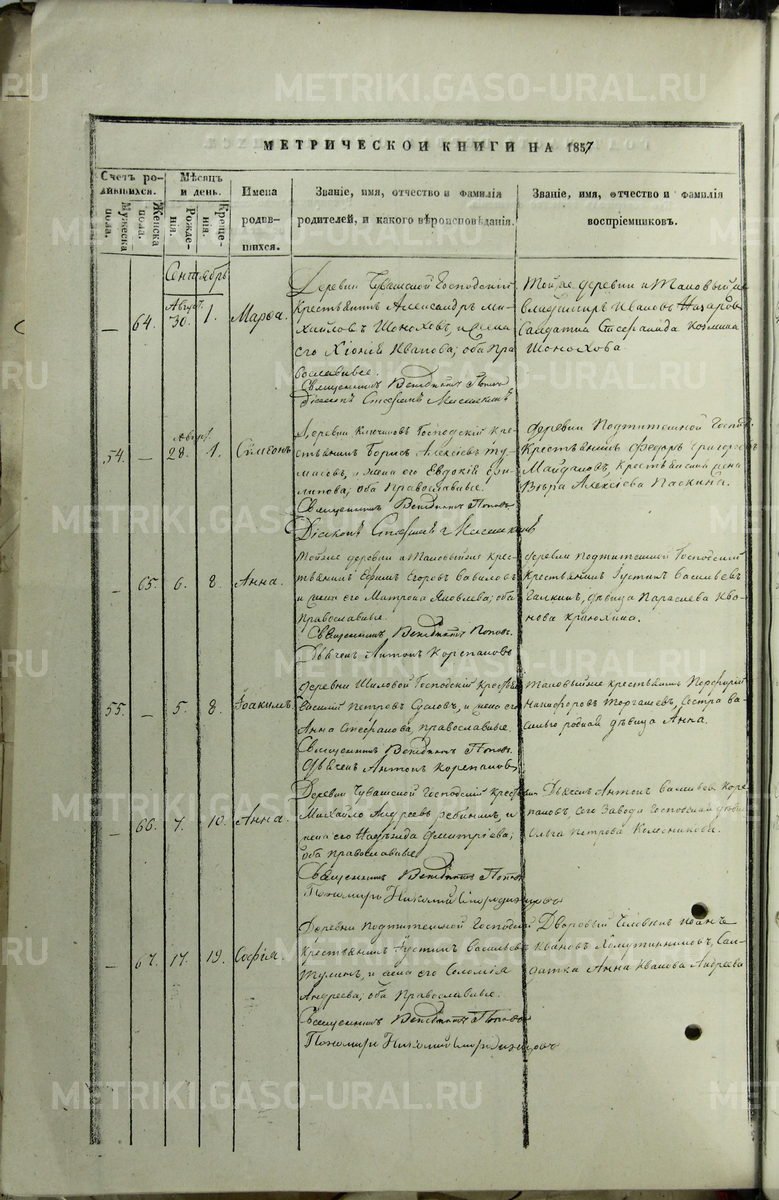 METRIKI.GASO-URAL.RU
МЕТРИЧЕСКОЙ КНИГИ НА 1857
Счетъ родившихся.
Мужеска пола.
Женска пола.
Мѣсяцъ и день.
Рожденія.
Крещенія.
Имена родившихся.
Званіе, имя, отчество и фамилія
родителей, и какого вѣроисповѣданія.
Званіе, имя, отчество и фамилія
воспріемниковъ.
Сентябрь
— 64. Август. 30. 1. Марѳа.
Деревни Чувашской Господскій
Крестьянинъ Александръ Ми-
хайловъ Шоноховъ, и жена
его Хіонія Иванова; оба Пра
вославные.
Священникъ Венедиктъ Поповъ
Діаконъ Стефанъ
Той же деревни
Владимиръ Ивановъ Назаровъ
Стефанида Козмина
Шонохова.
54. — Август. 28. 1. Симеонъ.
Деревни Господскій Кре-
стьянинъ Борисъ Алексѣевъ
жена его Евдокія Фи-
липова; оба Православные.
Священникъ Венедиктъ Поповъ
Діаконъ Стефанъ
деревни Подтипешной Господс.
Крестьянинъ Федоръ Григорьевъ
Крестьянская жена
Вѣра Алексіева Паскина.
— 65. 6. 8. Анна.
Той же деревни Крес-
тьянинъ Ефимъ Егоровъ Вавиловъ
и жена его Матрона Яковлева; оба
Православные.
Священникъ Венедиктъ Поповъ.
Дьячекъ Антонъ Корепановъ
деревни Подтипешной Господской
Крестьянинъ Іустинъ Васильевъ
Галкинъ, дѣвица Параскева Ива
нова
55. — 5. 8. Іоакимъ.
деревни Шиловой Господскій Крестьян
Василій Петровъ Сусловъ, и жена его
Анна Стефанова, православные.
Священникъ Венедиктъ Поповъ.
Дьячекъ Антонъ Корепановъ
крестьянинъ Порфирій
Никифоровъ сестра Ва
силью родная дѣвица Анна.
— 66. 7. 10. Анна.
Деревни Чувашской Господскій Крестьян
Михайло Андреевъ Рябининъ, и
жена его Надежда Дмитріева;
оба православные
Священникъ Венедиктъ Поповъ
Пономарь Николай
Дьячекъ Антонъ Васильевъ Коре
пановъ, сего Завода Господская дѣвиц
Ольга Петрова Колесникова.
— 67. 17. 19. Софія.
Деревни Подтипешной Господскій
Крестьянинъ Іустинъ Васильевъ
и жена его Соломія
Андреева; оба Православные.
Священникъ Венедиктъ Поповъ
Пономарь Николай
Дворовый Человекъ Иванъ
Ивановъ Сол-
датка Анна Иванова Андреева